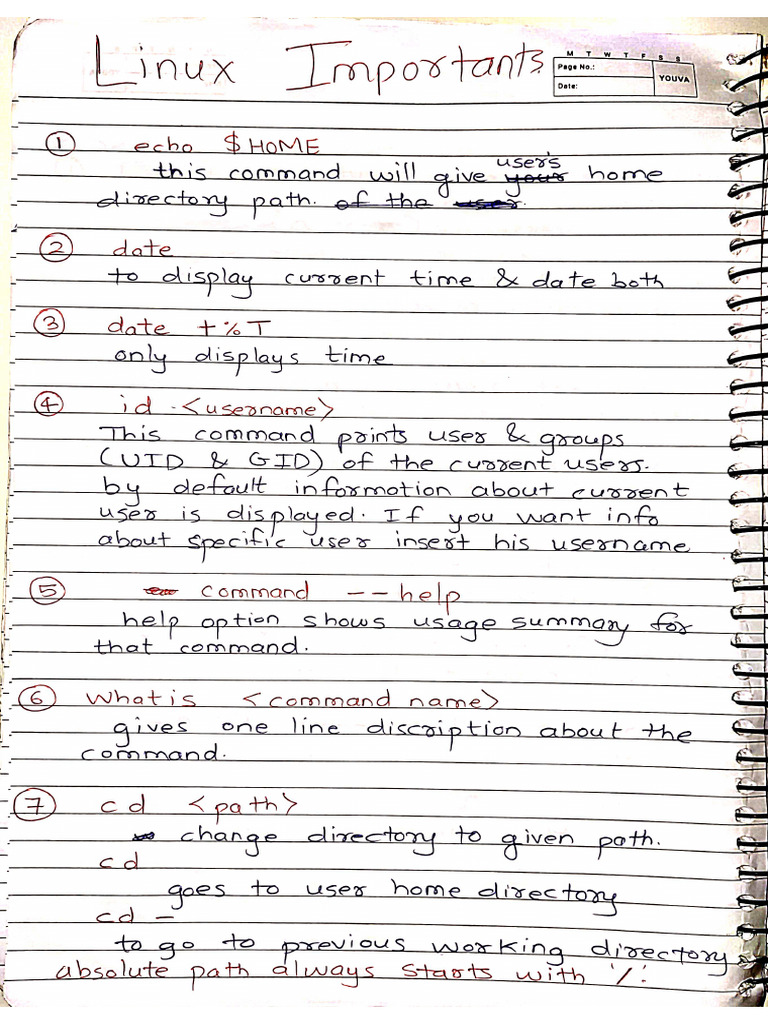 Linux Importants
M T W T F S S
Page No.:
YOUVA
Date:
① echo $HOME
user's
this command will give your home
directory path. of the user.
② date
to display current time & date both
③ date +%T
only displays time
④ id <username>
This command prints user & groups
(UID & GID) of the current users.
by default information about current
user is displayed. If you want info
about specific user insert his username
⑤ command --help
help option shows usage summary for
that command.
⑥ whatis <command name>
gives one line discription about the
command.
⑦ cd <path>
change directory to given path.
cd
goes to user home directory
cd -
to go to previous working directory
absolute path always starts with '/'.